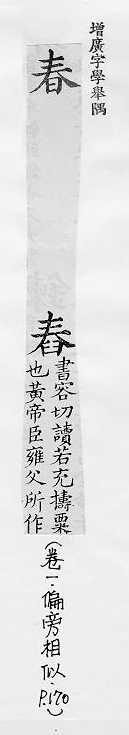 增廣字學舉隅
春
舂
書容切讀若充擣粟
也黃帝臣雍父所作
(卷一.偏旁相似.P.170)